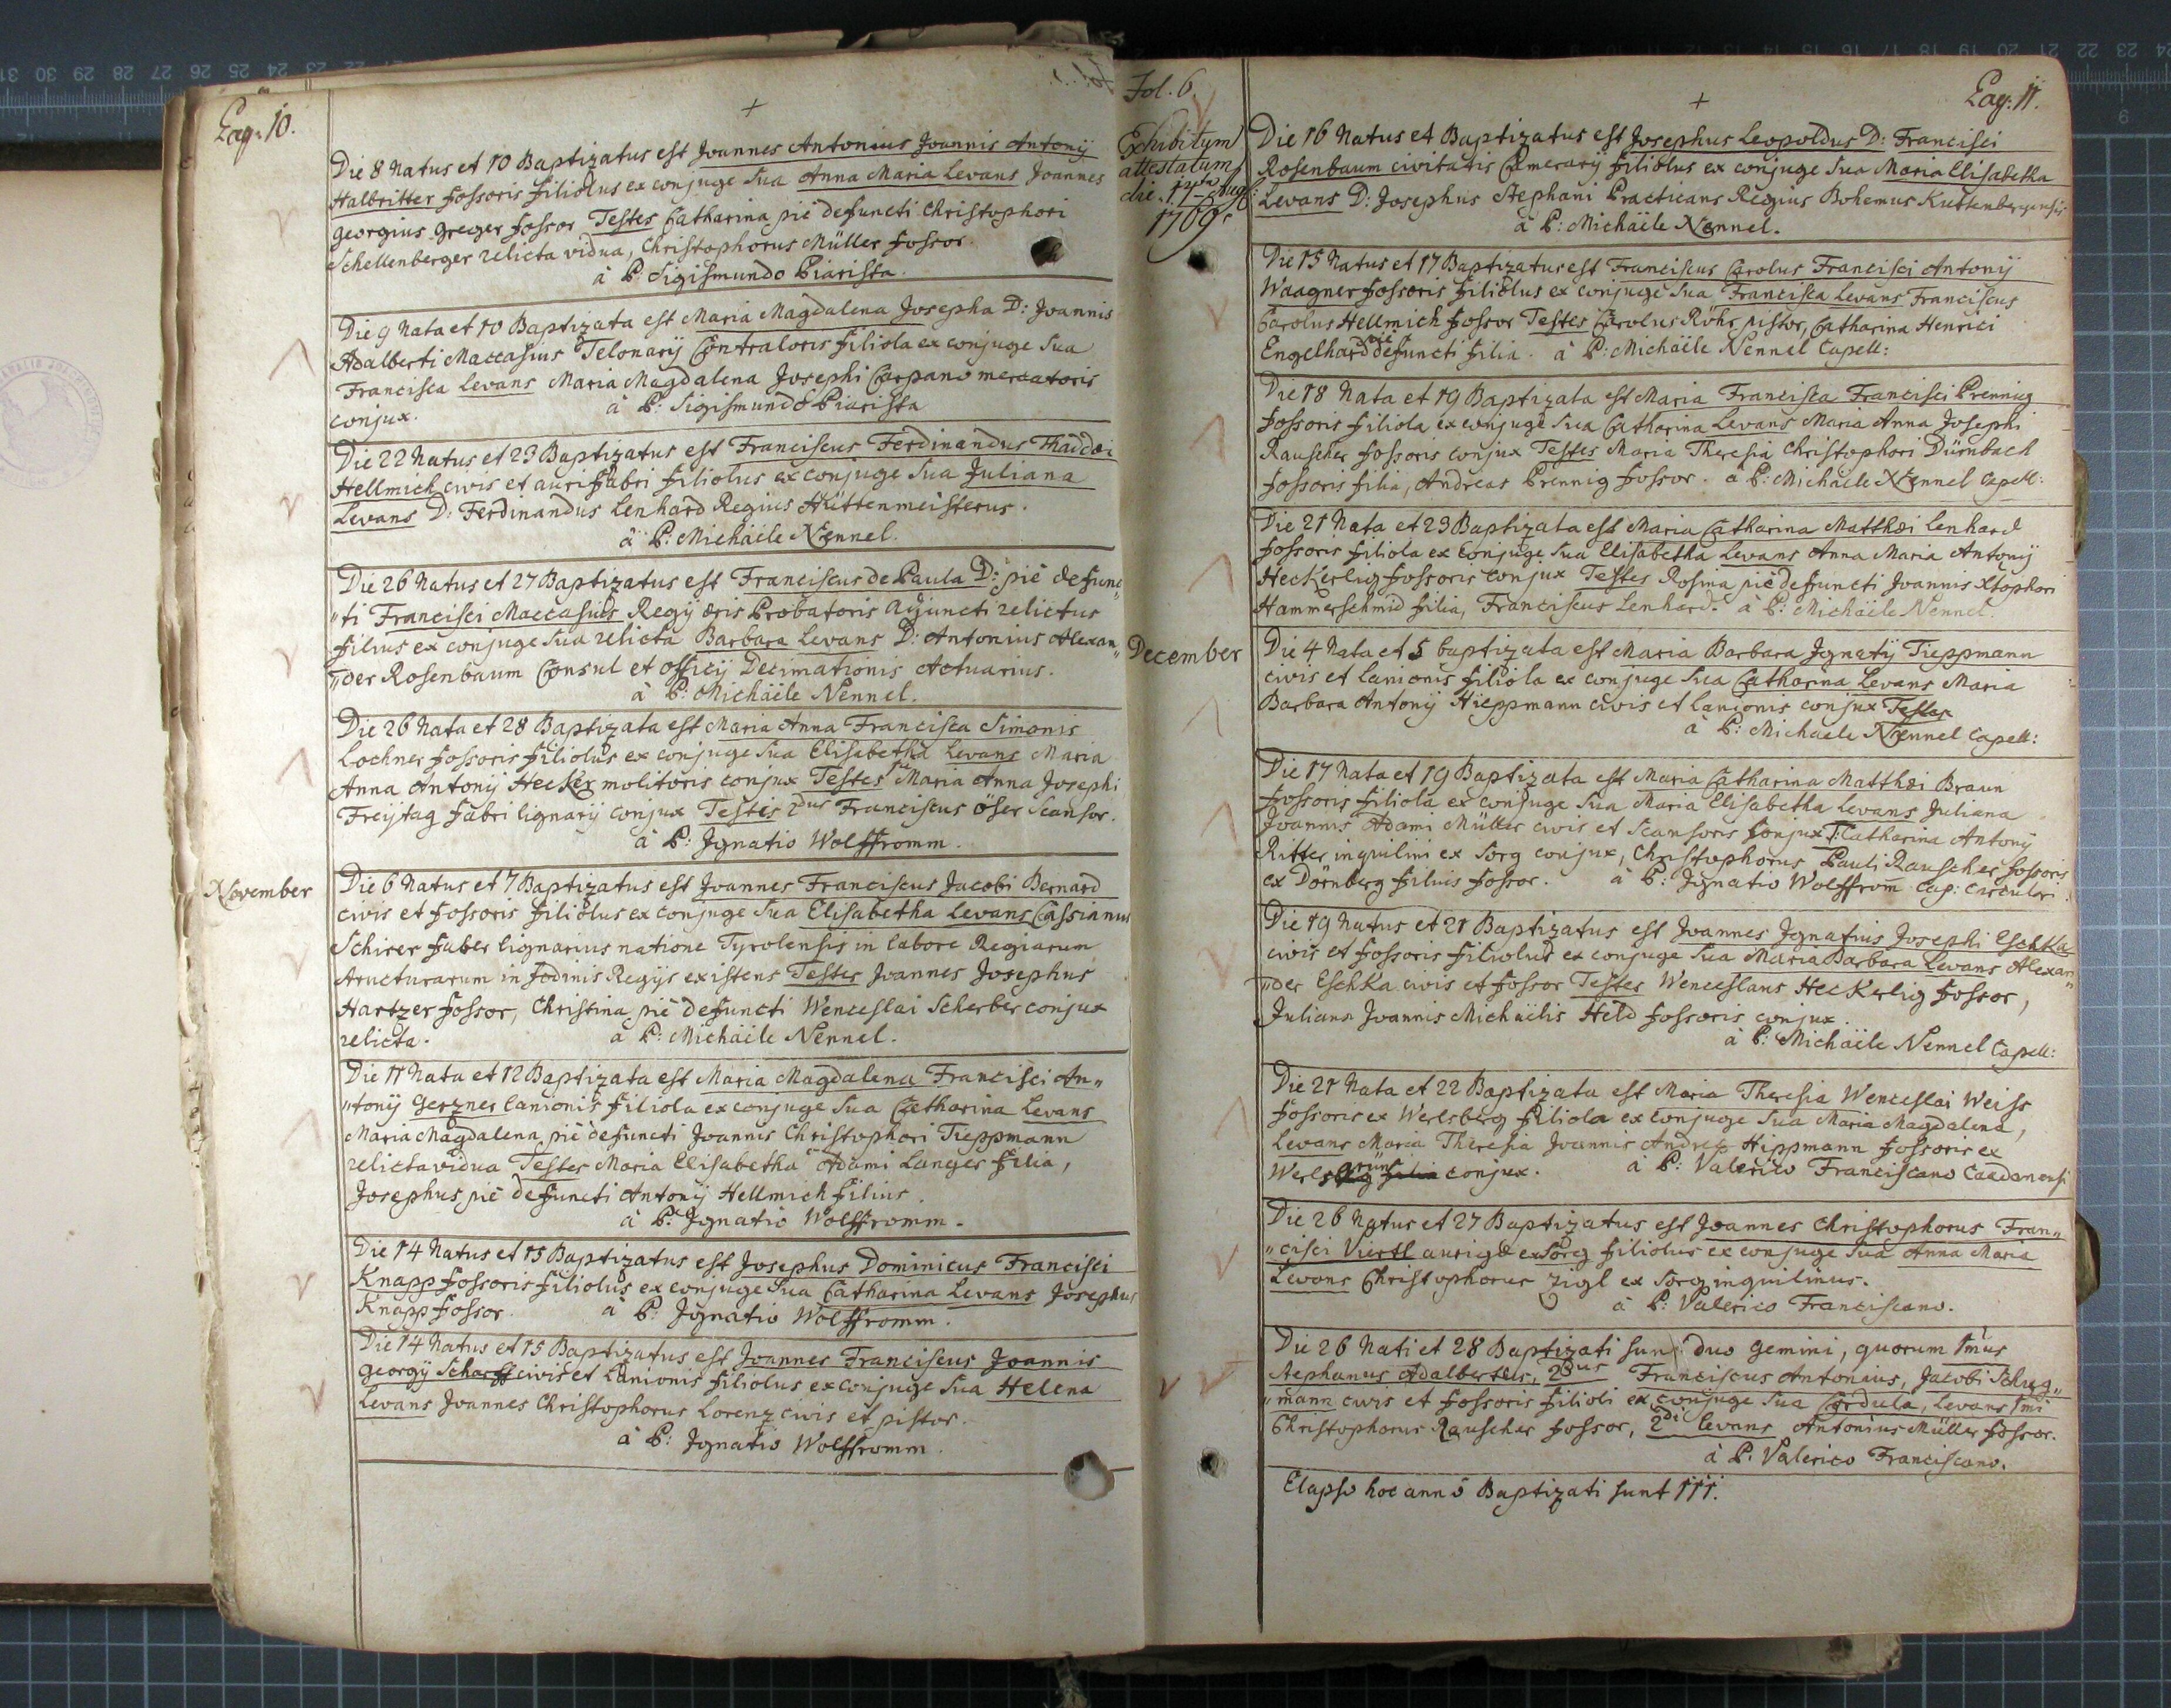 Pag: 10.
Die 8 Natus et 10 Baptizatus est Joannes Antonius Joannis Antonij
Halbritter fossoris filiolus ex conjuge sua Anna Maria Levans Joannes
Georgius Greger fossor Testes Catharina piè defuncti Christophori
Schellenberger relicta vidua, Christophorus Müller fossor.
à P: Sigismundo Piarista.
Die 9 Nata et 10 Baptizata est Maria Magdalena Josepha D: Joannis
Adalberti Maccasius Telonarij Contraloris filiola ex conjuge sua
Francisca Levans Maria Magdalena Josephi Carpano mercatoris
conjux. à P: Sigismundo Piarista
Die 22 Natus et 23 Baptizatus est Franciscus Ferdinandus Thaddæi
Hellmich civis et aurifabri filiolus ex conjuge sua Juliana
Levans D: Ferdinandus Lenhard Regius Hüttenmeisterus.
à P: Michaële Nennel.
Die 26 Natus et 27 Baptizatus est Franciscus de Paula D: piè defunc„
„ti Francisci Maccasius Regij æris Probatoris Adjuncti relictus
filius ex conjuge sua relicta Barbara Levans D: Antonius Alexan„
„der Rosenbaum Consul et officij Decimationis Actuarius.
à P: Michaële Nennel.
Die 26 Nata et 28 Baptizata est Maria Anna Francisca Simonis
Lochner fossoris filiolus ex conjuge sua Elisabetha Levans Maria
Anna Antonij Hecker molitoris conjux Testes Maria Anna Josephi
Freijtag fabri lignarij conjux Testes 2dus Franciscus Öser Scansor.
à P: Ignatio Wolffromm.
November
Die 6 Natus et 7 Baptizatus est Joannes Franciscus Jacobi Bernard
civis et fossoris filiolus ex conjuge sua Elisabetha Levans Cassianus
Schirer faber lignarius natione Tyrolensis in labore Regiarum
structurarum in fodinis Regijs existens Testes Joannes Josephus
Hartzer fossor, Christina piè defuncti Wenceslai Scherber conjux
relicta. à P: Michaële Nennel.
Die 11 Nata et 12 Baptizata est Maria Magdalena Francisci An„
„tonij Gerzner lanionis filiola ex conjuge sua Catharina Levans
Maria Magdalena piè defuncti Joannis Christophori Tieppmann
relicta vidua Testes Maria Elisabetha Adami Langer filia,
Josephus piè defuncti Antonij Hellmich filius.
à P: Ignatio Wolffromm.
Die 14 Natus et 15 Baptizatus est Josephus Dominicus Francisci
Knapp fossoris filiolus ex conjuge sua Catharina Levans Josephus
Knapp fossor. à P: Ignatio Wolffromm.
Die 14 Natus et 15 Baptizatus est Joannes Franciscus Joannis
Georgij Scharff civis et Lanionis filiolus ex conjuge sua Helena
Levans Joannes Christophorus Lorenz civis et pistor.
à P: Ignatio Wolffromm.
Fol. 6.
Pag: 11.
Exhibitum
attestatum
die 17 Aug:
1769
Die 16 Natus et Baptizatus est Josephus Leopoldus D: Francisci
Rosenbaum civitatis Camerarij filiolus ex conjuge sua Maria Elisabetha
Levans D: Josephus Stephani Practicans Regius Bohemus Kuttenbergensis
à P: Michaële Nennel.
Die 15 Natus et 17 Baptizatus est Franciscus Carolus Francisci Antonij
Waagner fossoris filiolus ex conjuge sua Francisca Levans Franciscus
Carolus Hellmich fossor Testes Carolus Röhr pistor, Catharina Henrici
Engelhard piè defuncti filia. à P: Michaële Nennel Capell:
Die 18 Nata et 19 Baptizata est Maria Francisca Francisci Prennig
fossoris filiola ex conjuge sua Catharina Levans Maria Anna Josephi
Rauscher fossoris conjux Testes Maria Theresia Christophori Dürnbach
fossoris filia, Andreas Prennig fossor. à P: Michaële Nennel Capell:
Die 21 Nata et 23 Baptizata est Maria Catharina Matthæi Lenhard
fossoris filiola ex conjuge sua Elisabetha Levans Anna Maria Antonij
Heckerlig fossoris conjux Testes Rosina piè defuncti Joannis Xtophori
Hammerschmid filia, Franciscus Lenhard. à P: Michaële Nennel.
December
Die 4 Nata et 5 baptizata est Maria Barbara Ignatij Tieppmann
civis et Lanionis filiola ex conjuge sua Catharina Levans Maria
Barbara Antonij Hieppmann civis et lanionis conjux Testes
à P: Michaele Nennel Capell:
Die 17 Nata et 19 Baptizata est Maria Catharina Matthæi Braun
fossoris filiola ex conjuge sua Maria Elisabetha Levans Juliana
Joannis Adami Müller civis et Scansoris conjux T: Catharina Antonij
Ritter inquilini ex Sorg conjux, Christophorus Pauli Rauscher fossoris
ex Dörnberg filius fossor. à P: Ignatio Wolffrom̄ Cap: Circulri.
Die 19 Natus et 21 Baptizatus est Joannes Ignatius Josephi Eschka
civis et fossoris filiolus ex conjuge sua Maria Barbara Levans Alexan„
„der Eschka civis et fossor Testes Wenceslaus Heckerlig fossor,
Juliana Joannis Michaëlis Held fossoris conjux.
à P: Michaële Nennel Capell:
Die 21 Nata et 22 Baptizata est Maria Theresia Wenceslai Weiss
fossoris ex Werlsberg filiola ex conjuge sua Maria Magdalena,
Levans Maria Theresia Joannis Andreæ Hippmann fossoris ex
Werlsgrün filia conjux. à P: Valerico Franciscano Caadanensi
Die 26 Natus et 27 Baptizatus est Joannes Christophorus Fran„
„cisci Viertl aurigæ ex Sorg filiolus ex conjuge sua Anna Maria
Levans Christophorus Zigl ex Sorg inquilinus.
à P: Valerico Franciscano.
Die 26 Nati et 28 Baptizati sunt duo gemini, quorum 1mus
Stephanus Adalbertus, 2dus Franciscus Antonius, Jacobi Schug„
„mann civis et fossoris filioli ex conjuge sua Cordula, Levans 1mi
Christophorus Rauscher fossor, 2di Levans Antonius Müller fossor.
à P. Valerico Franciscano.
Elapso hoc annô Baptizati sunt 111.